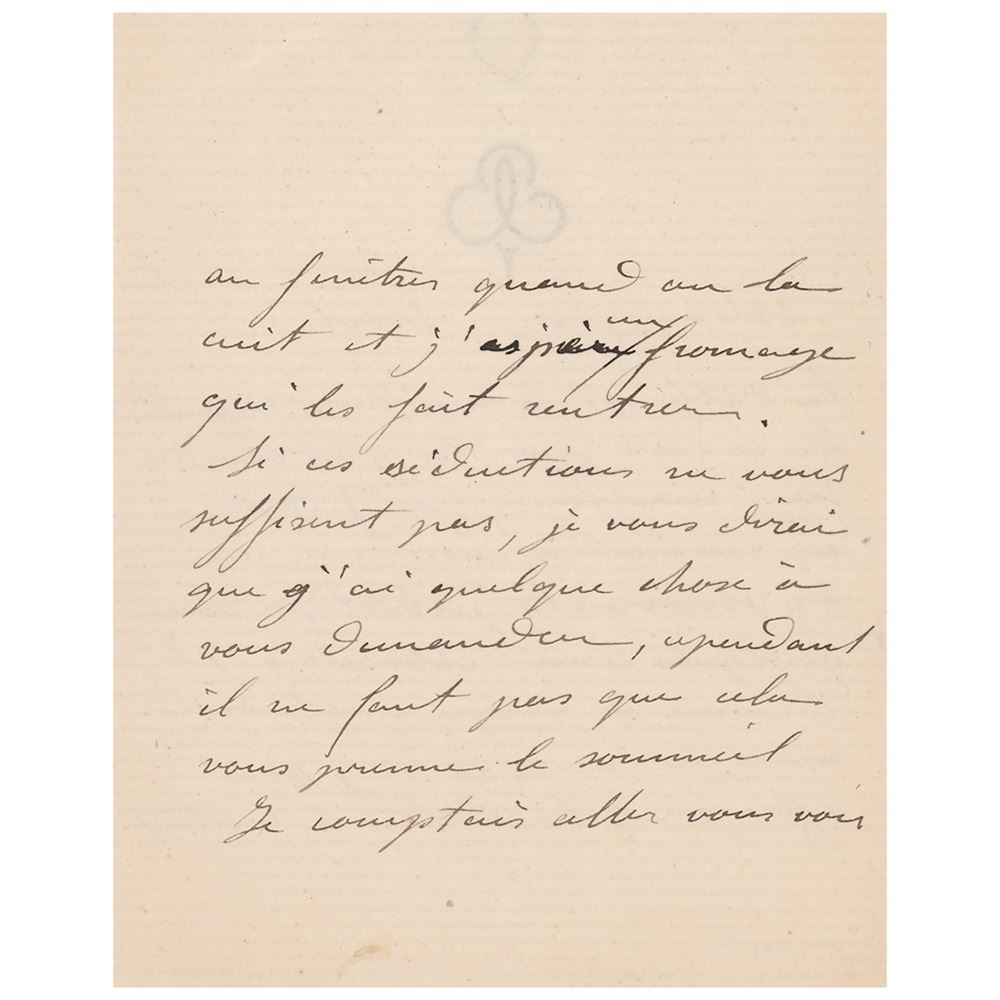 au fenêtres quand on la
cuit et j'espère un fromage
qui les fait rentrer.
Si ces séductions ne vous
suffisent pas, je vous dirai
que j'ai quelque chose à
vous demander, cependant
il ne faut pas que cela
vous prenne le sommeil
Je comptais aller vous voir